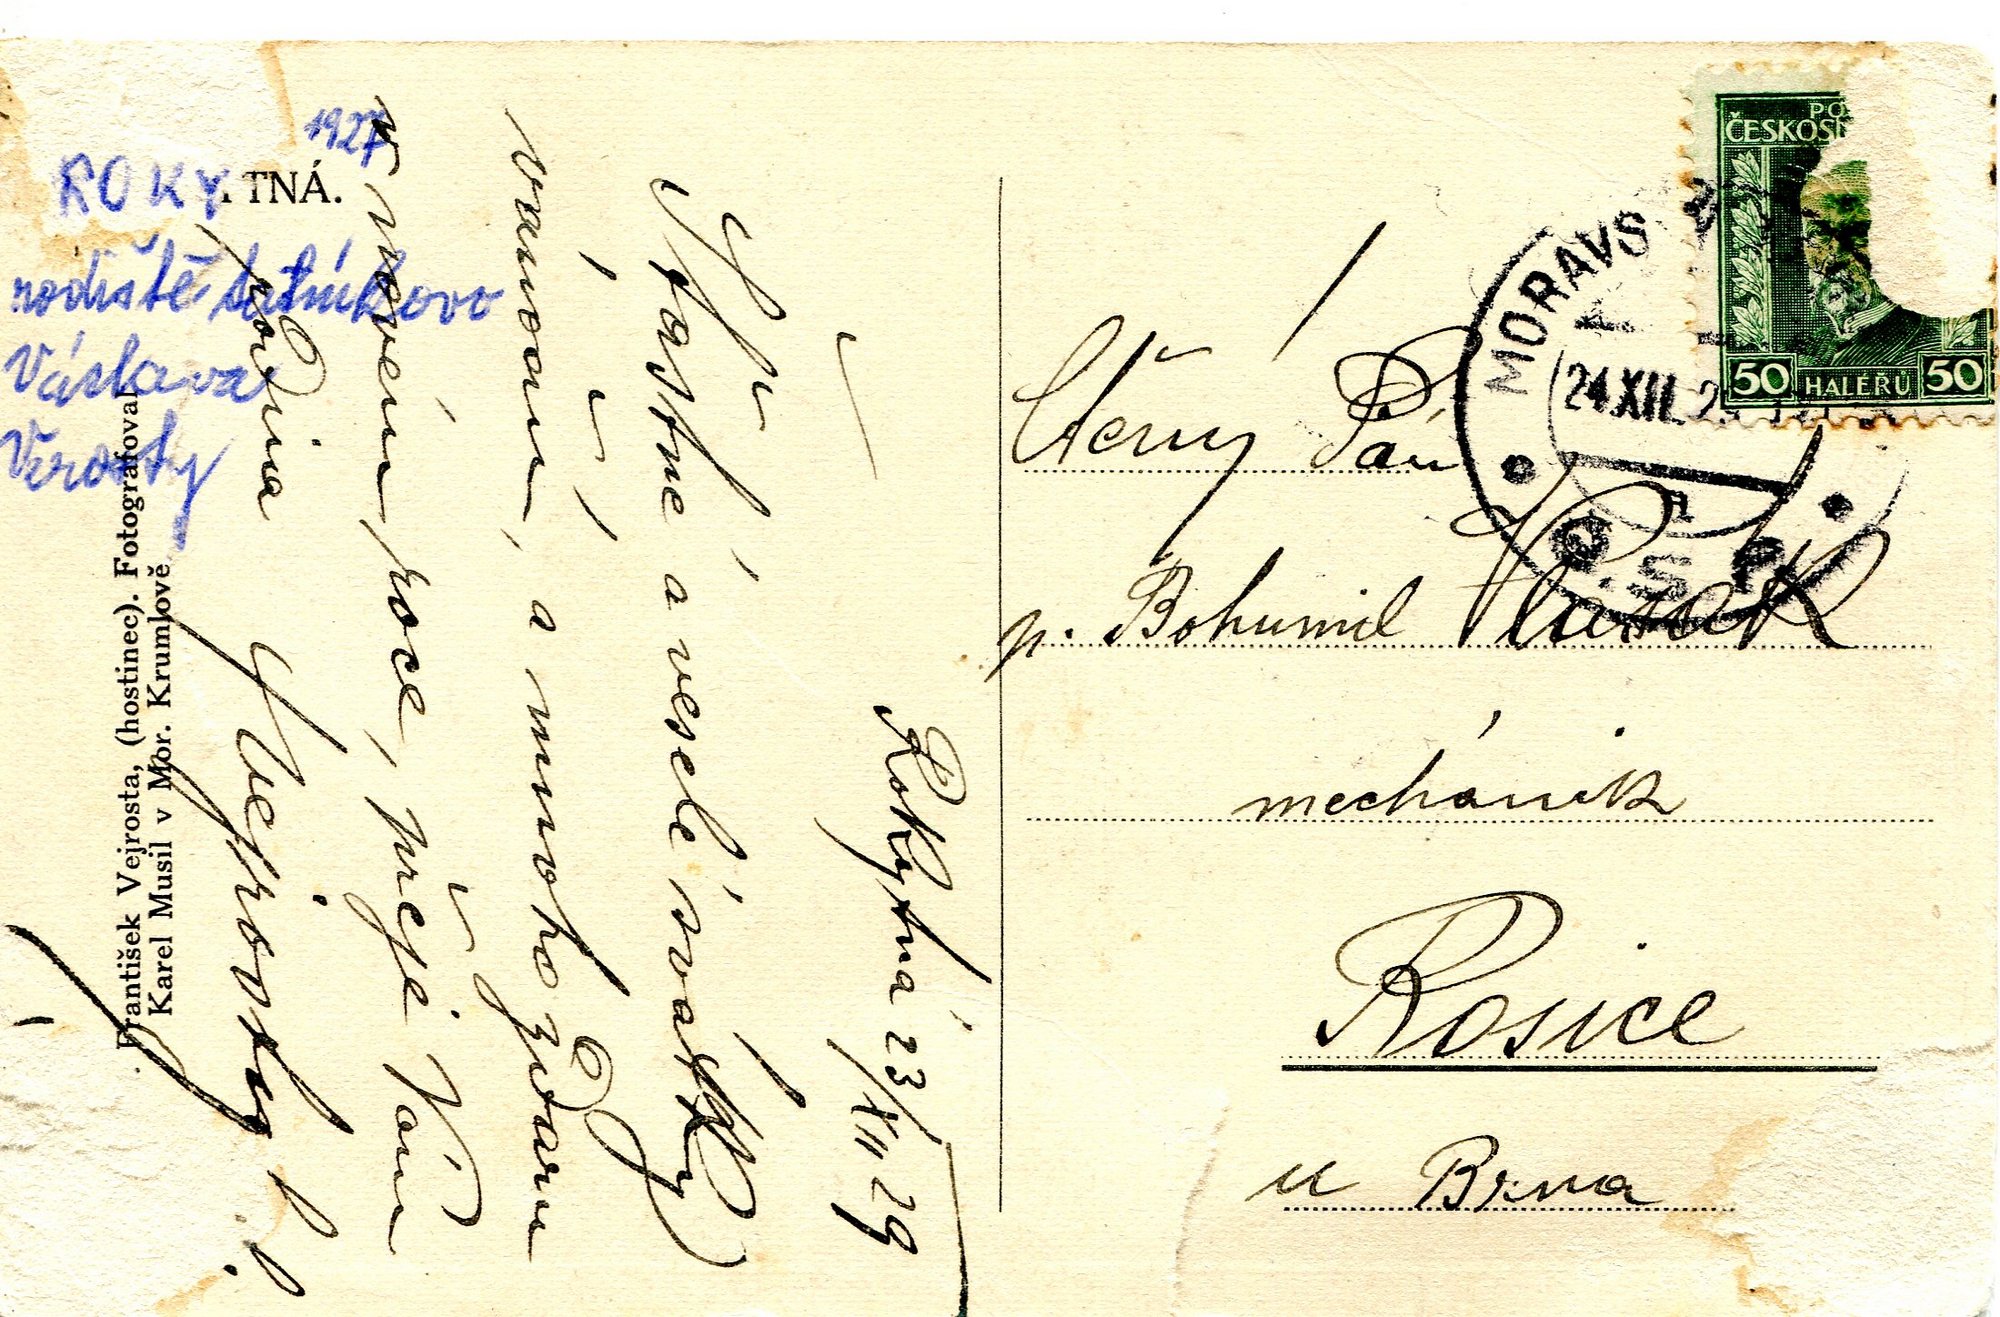 1927
ROKYTNÁ.
rodiště tatínkovo
Václava
Verosty
František Vejrosta, (hostinec). Fotografoval
Karel Musil v Mor. Krumlově.
Rokytná 23/XII 29
Šťastné a veselé svátky
vánoční, a mnoho zdaru
v novém roce, přeje Vám
rodina Vejrosty
POŠ
ČESKOSL
50 HALÉŘŮ 50
MORAVS
24.XII.2
Č.S.P.
Ctěný Pán
p. Bohumil
mechánik
Rosice
u Brna